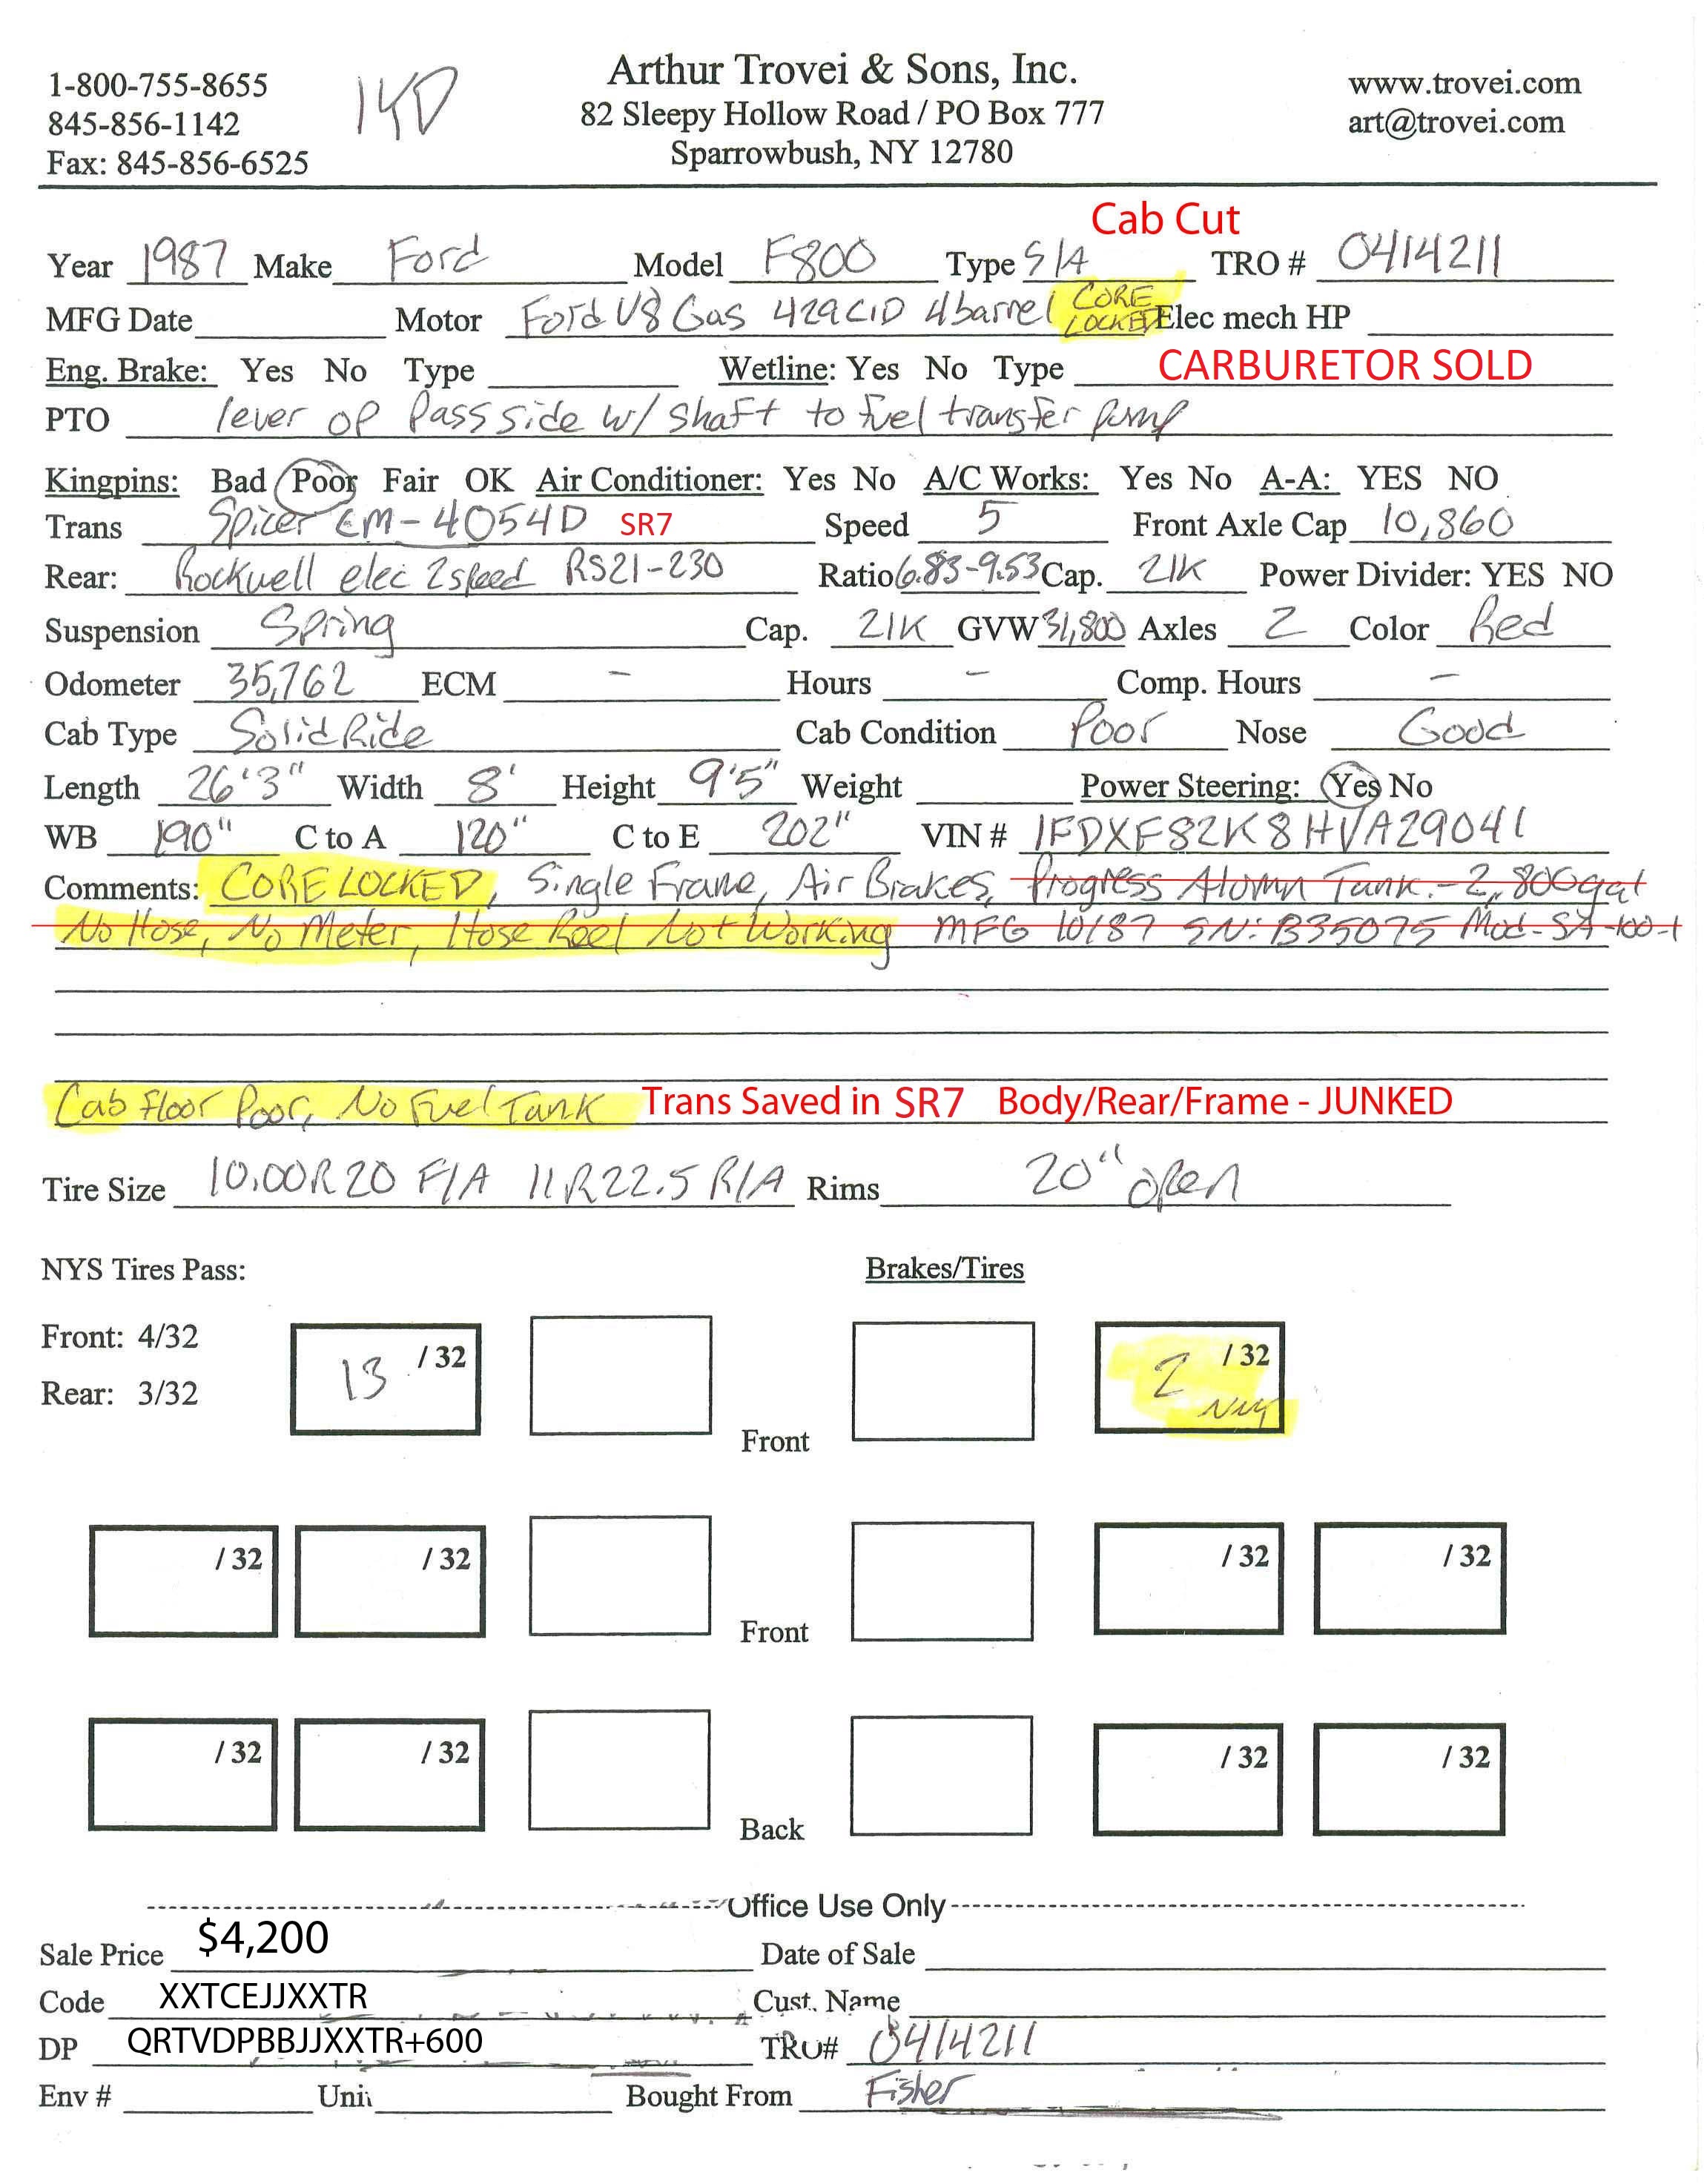 1-800-755-8655
845-856-1142
Fax: 845-856-6525
Arthur Trovei & Sons, Inc.
82 Sleepy Hollow Road / PO Box 777
Sparrowbush, NY 12780
www.trovei.com
art@trovei.com
Cab Cut
Year 1987 Make Ford Model F800 Type S/A TRO # 0414211
MFG Date Motor Ford V8 Gas 429 CID 4 barrel CORE LOCKED Elec mech HP
Eng. Brake: Yes No Type Wetline: Yes No Type CARBURETOR SOLD
PTO lever op Pass side w/ shaft to fuel transfer pump
Kingpins: Bad Poor Fair OK Air Conditioner: Yes No A/C Works: Yes No A-A: YES NO
Trans Spicer CM-4054D SR7 Speed 5 Front Axle Cap 10,860
Rear: Rockwell elec 2 speed RS21-230 Ratio 6.83-9.53 Cap. 21K Power Divider: YES NO
Suspension Spring Cap. 21K GVW 31,800 Axles 2 Color Red
Odometer 35,762 ECM - Hours - Comp. Hours -
Cab Type Solid Ride Cab Condition Poor Nose Good
Length 26'3" Width 8' Height 9'5" Weight Power Steering: Yes No
WB 190" C to A 120" C to E 202" VIN # 1FDXF82K8HVA29041
Comments: CORE LOCKED, Single Frame, Air Brakes, Progress Alumn Tank - 2,800 gal
No Hose, No Meter, Hose Reel Not Working MFG 10/87 SN: B35075 Mod- SA-100-1
Cab floor Poor, No Fuel Tank Trans Saved in SR7 Body/Rear/Frame - JUNKED
Tire Size 10.00R20 F/A 11R22.5 R/A Rims 20" open
NYS Tires Pass: Brakes/Tires
Front: 4/32
Rear: 3/32
13 /32 2 /32
Front
/32 /32 /32 /32
Front
/32 /32 /32 /32
Back
Office Use Only
Sale Price $4,200 Date of Sale
Code XXTCEJJXXTR Cust. Name
DP QRTVDPBBJJXXTR+600 TRO# 0414211
Env # Unit Bought From Fisher